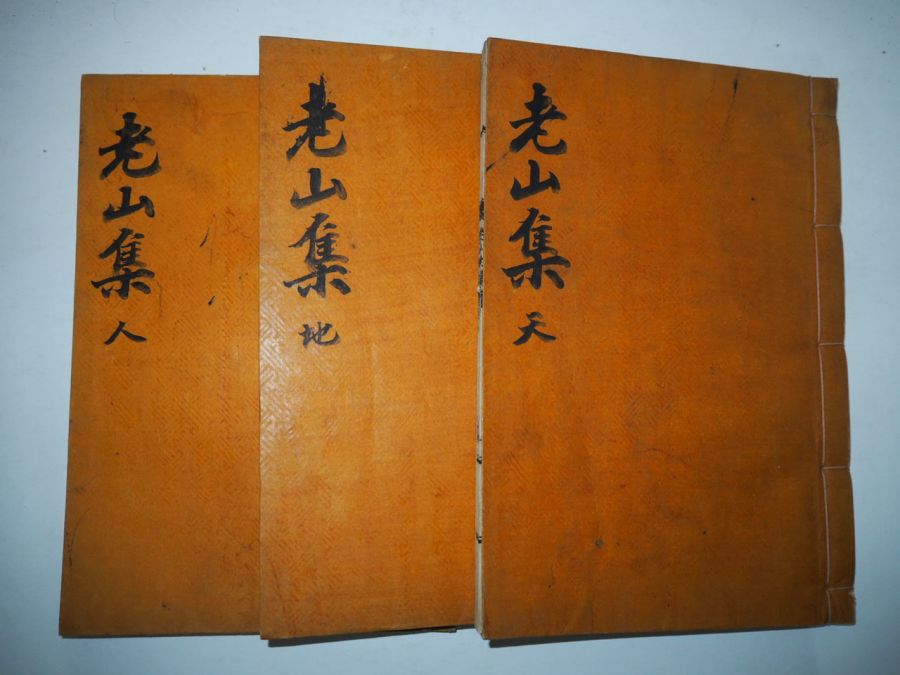 老山集 天
老山集 地
老山集 人